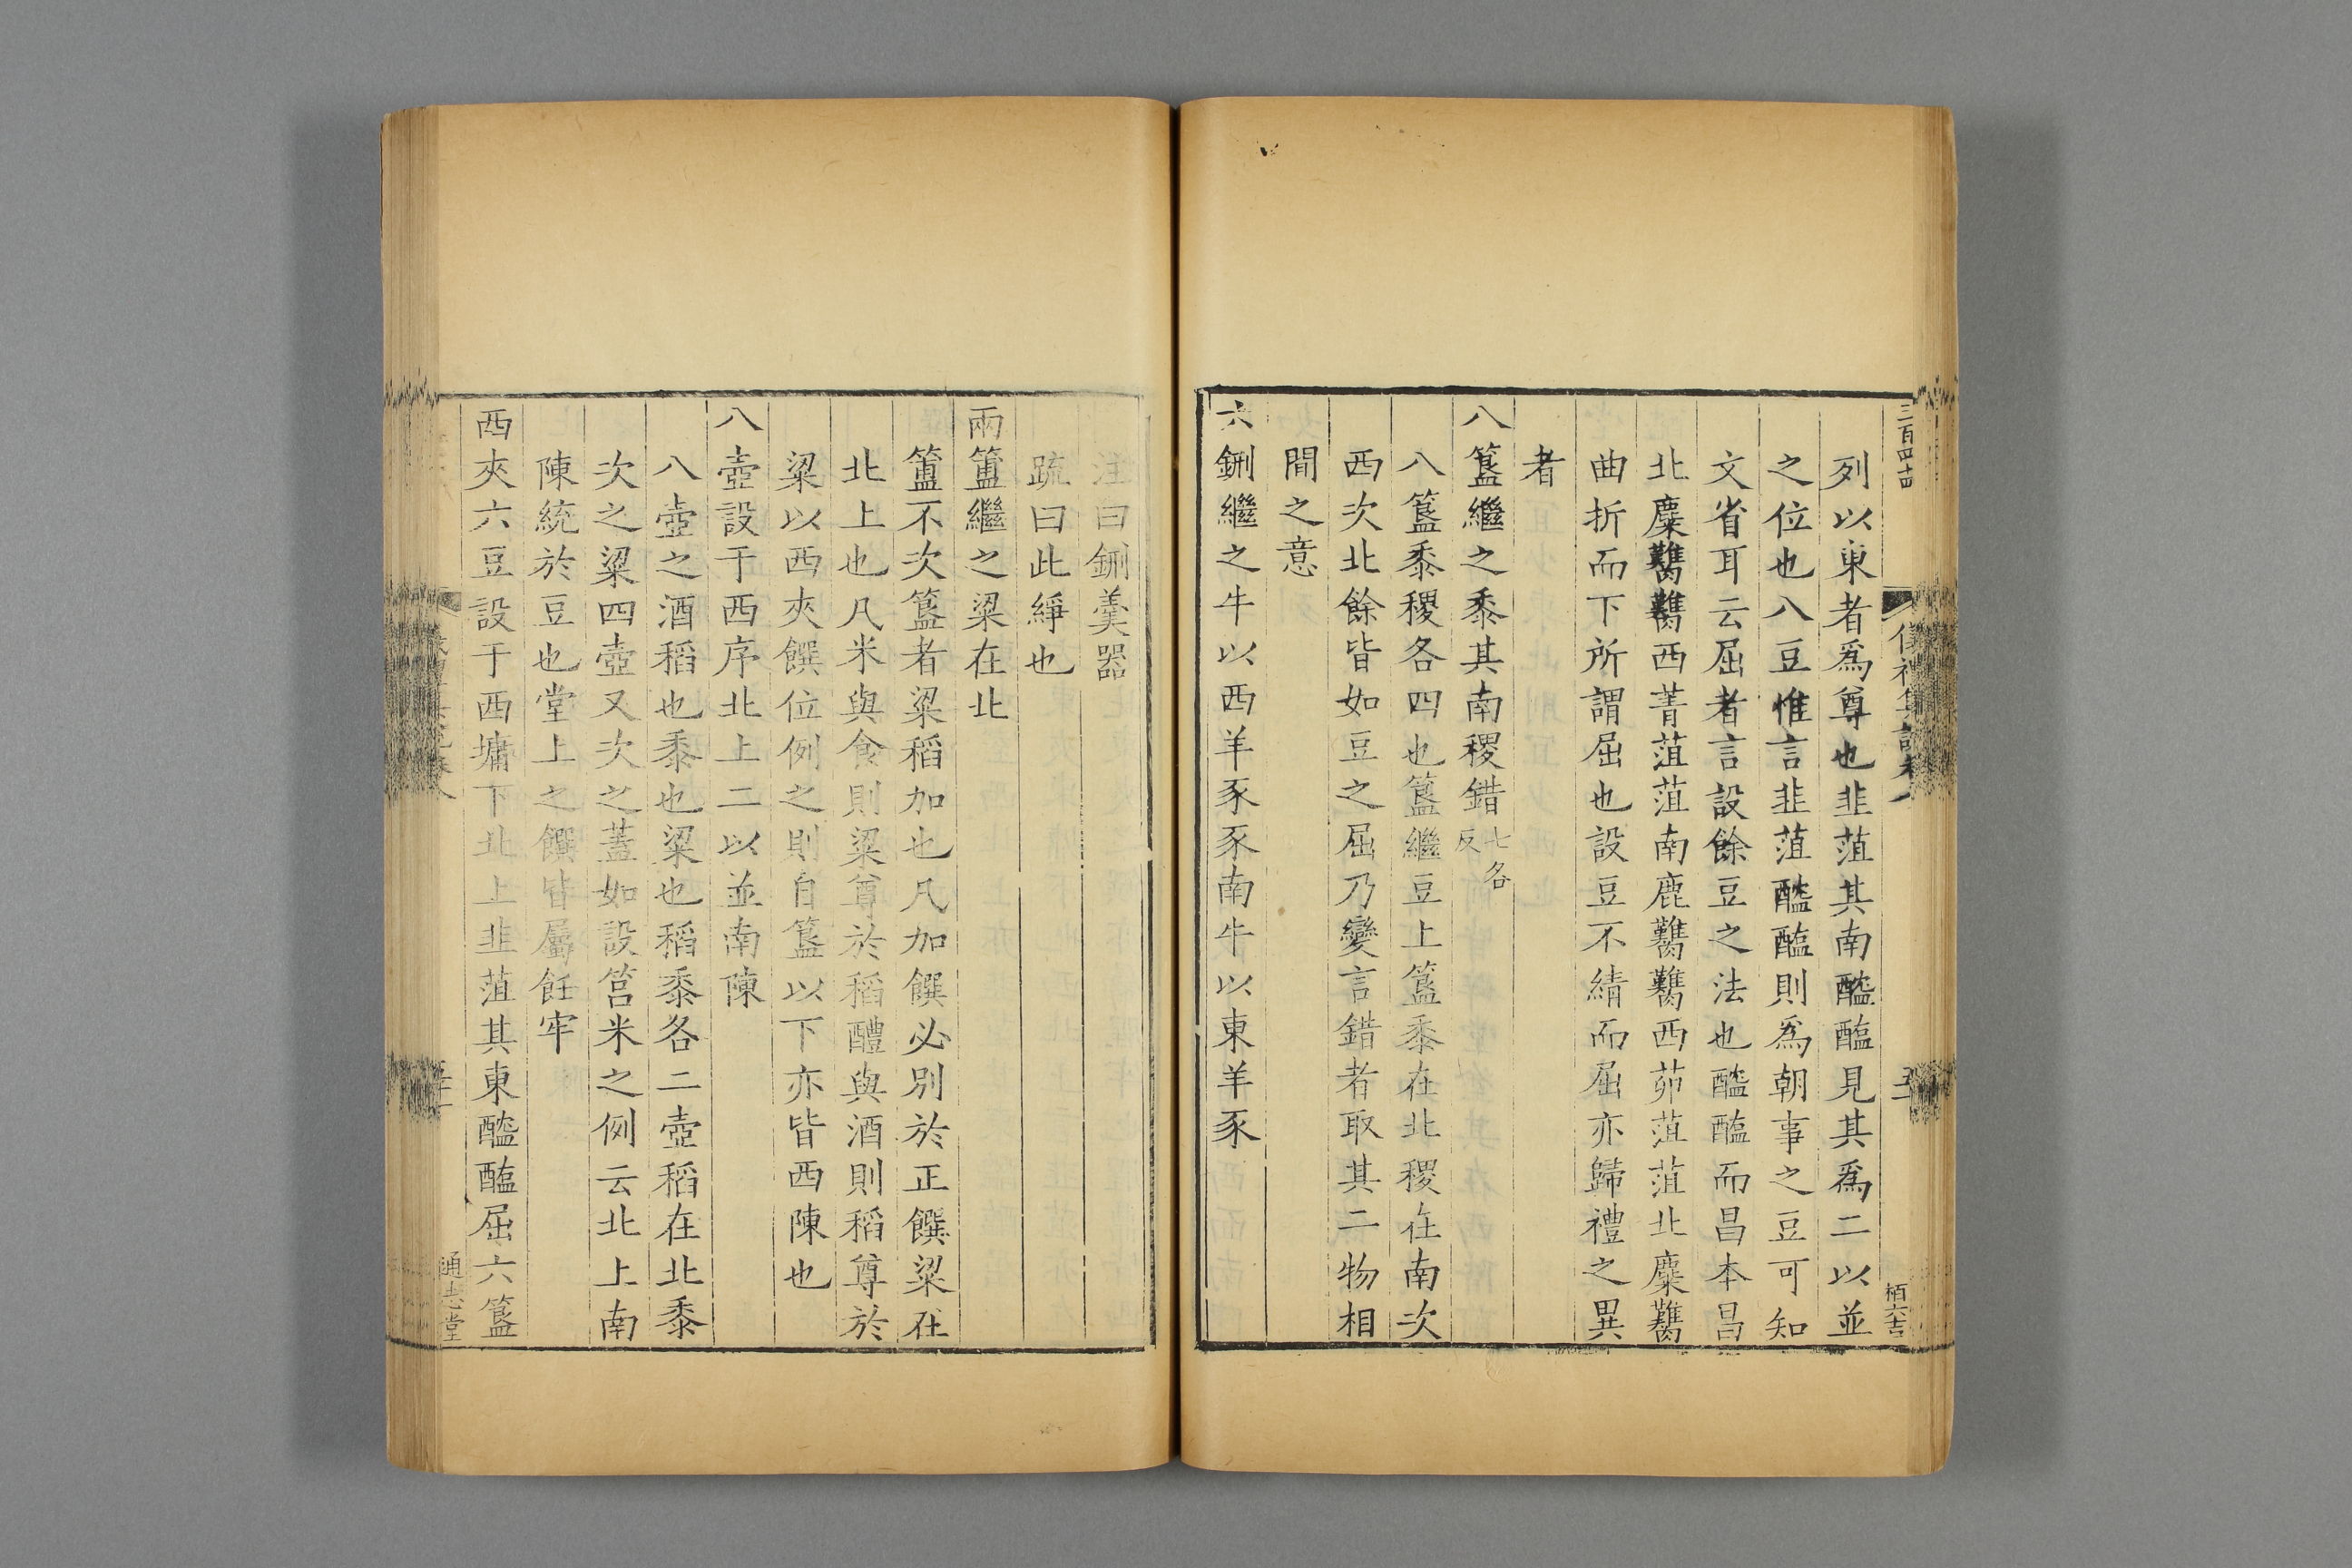 三百四十四
儀禮集說卷八
列以東者爲尊也韭菹其南醓醢見其爲二以並
之位也八豆惟言韭菹醓醢則爲朝事之豆可知
文省耳云屈者言設餘豆之法也醓醢而昌本昌
北麋臡臡西菁菹菹南鹿臡臡西茆菹菹北麋臡
曲折而下所謂屈也設豆不綪而屈亦歸禮之異
者
八簋繼之黍其南稷錯七各反
八簋黍稷各四也簋繼豆上簋黍在北稷在南次
西次北餘皆如豆之屈乃變言錯者取其二物相
間之意
六鉶繼之牛以西羊豕豕南牛以東羊豕
注曰鉶羹器
疏曰此綪也
兩簠繼之粱在北
簠不次簋者粱稻加也凡加饌必別於正饌粱在
北上也凡米與食則粱尊於稻醴與酒則稻尊於
粱以西夾饌位例之則自簋以下亦皆西陳也
八壺設于西序北上二以並南陳
八壺之酒稻也黍也粱也稻黍各二壺稻在北黍
次之粱四壺又次之蓋如設筥米之例云北上南
陳統於豆也堂上之饌皆屬飪牢
西夾六豆設于西墉下北上韭菹其東醓醢屈六簋
通志堂